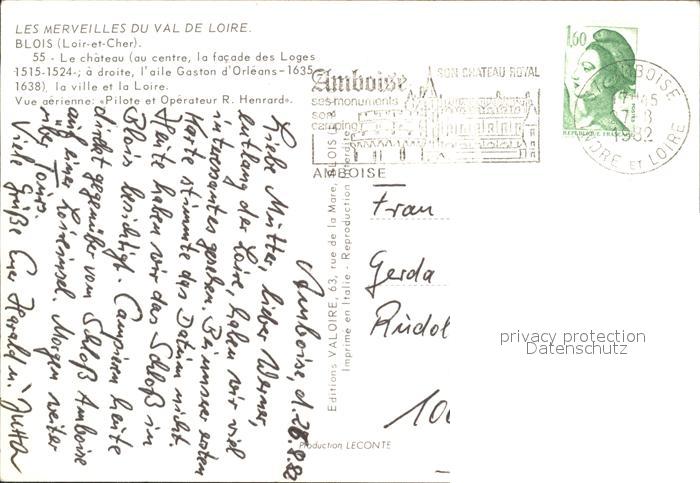 LES MERVEILLES DU VAL DE LOIRE.
BLOIS (Loir-et-Cher).
55 - Le château (au centre, la façade des Loges
1515-1524 ; à droite, l'aile Gaston d'Orléans - 1635-
1638), la ville et la Loire.
Vue aérienne: «Pilote et Opérateur R. Henrard».
Amboise
ses monuments
son
camping
SON CHATEAU ROYAL
AMBOISE
1,60
POSTES
REPUBLIQUE FRANÇAISE
AMBOISE
17-45
7-8
1982
INDRE ET LOIRE
Editions VALOIRE, 63, rue de la Mare, BLOIS
Imprimé en Italie - Reproduction interdite
Production LECONTE
Amboise, d. 28.8.82
Liebe Mutter, lieber Werner,
entlang der Loire, haben wir viel
interessantes gesehen. Bei unserer ersten
Karte stimmte das Datum nicht.
Heute haben wir das Schloß in
Blois besichtigt. Campieren heute
direkt gegenüber vom Schloß Amboise
auf einer Loireinsel. Morgen weiter
Viele Grüße Eure Harald u. Jutta
Frau
Gerda
Rudol
100
privacy protection
Datenschutz